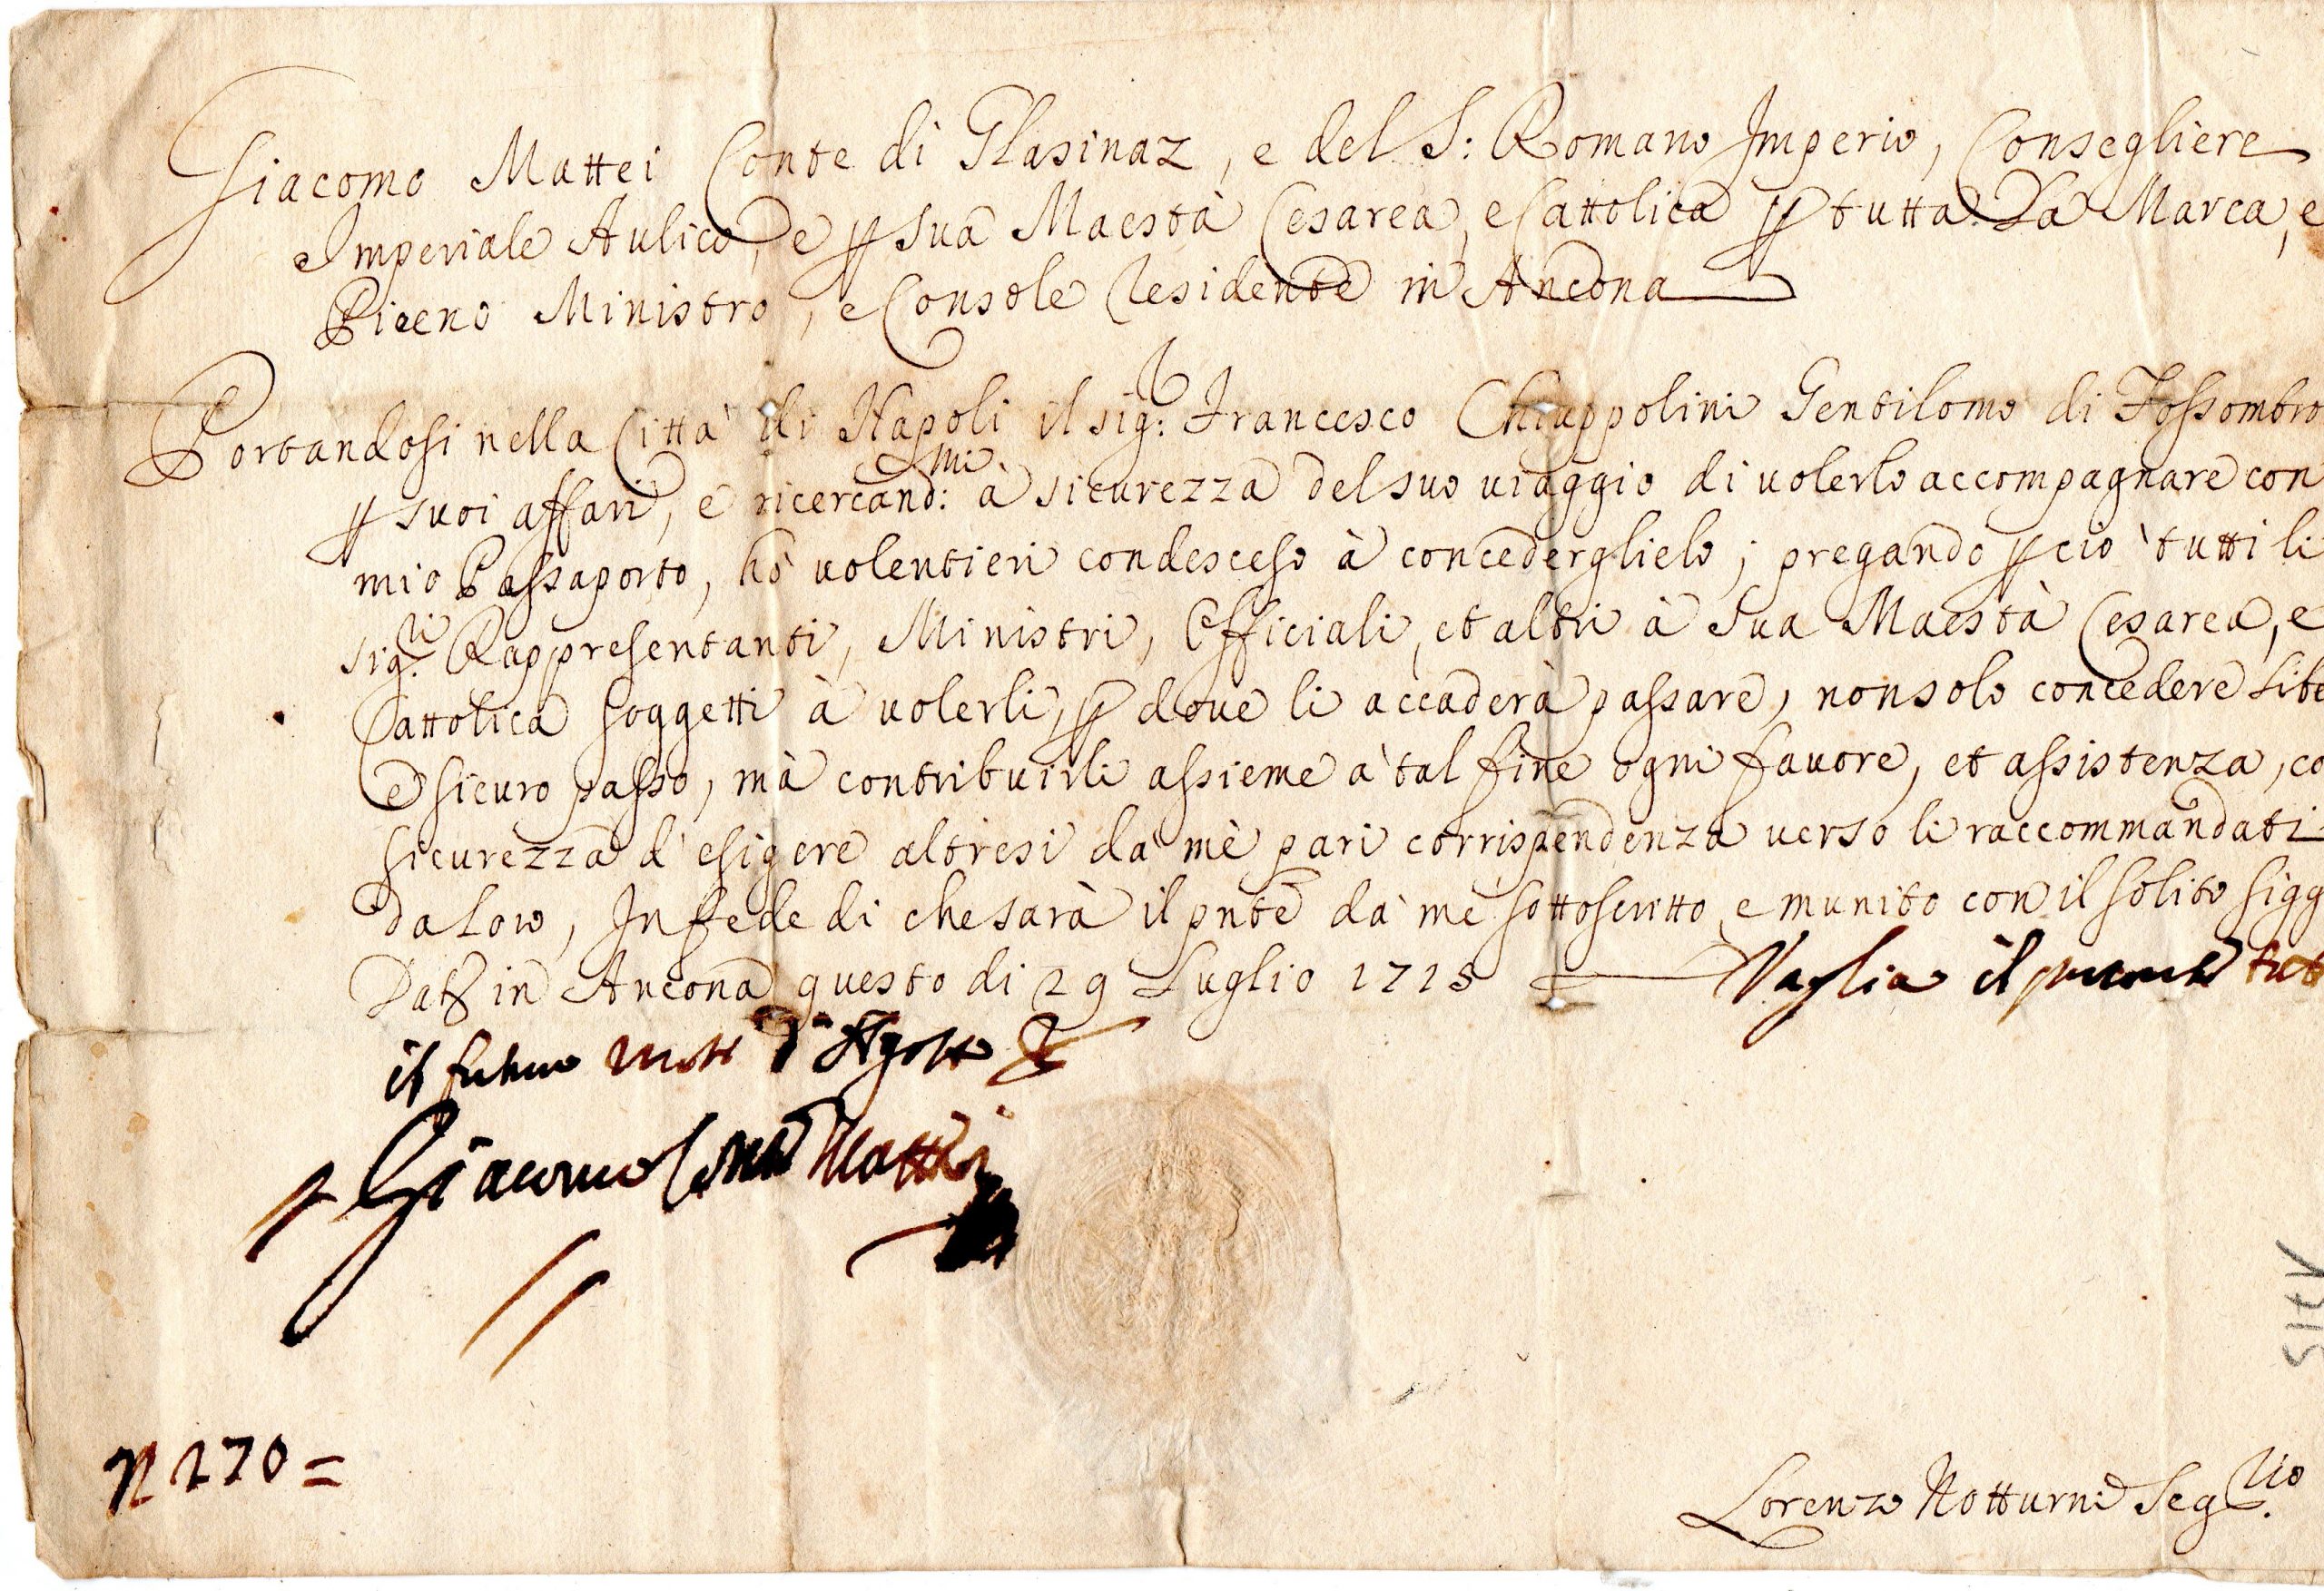 Giacomo Mattei Conte di Glasinaz, e del S: Romano Imperio, Consegliere
Imperiale Aulico, e ꝑ sua Maestà Cesarea, e Cattolica ꝑ tutta La Marca, e
Piceno Ministro, e Console Residente in Ancona
Portandosi nella Città di Napoli il Sig:r Francesco Chiappolini Gentilomo di Fossombro
ꝑ suoi affari, e ricercand:mi à sicurezza del suo viaggio di volerlo accompagnare con
mio Passaporto, hò volentieri condesceso à concederglielo; pregando ꝑ ciò tutti li
Sig:ri Rappresentanti, Ministri, Officiali, et altri à Sua Maestà Cesarea, e
Cattolica soggetti à volerli, ꝑ dove li accaderà passare, non solo concedere libe
e sicuro passo, mà contribuirli assieme à tal fine ogni favore, et assistenza, co
sicurezza d'esigere altresi da mè pari corrispendenza verso li raccommandati
da Loro, In fede di che sarà il pnte da me sottoscritto, e munito con il solito sigg
Dat in Ancona questo di 29 Luglio 1715 Vaglia il presente tut
il futuro mese d'Agosto
Giacomo Conte Mattei
N 270 =
1715
Lorenzo Notturni Seg:rio